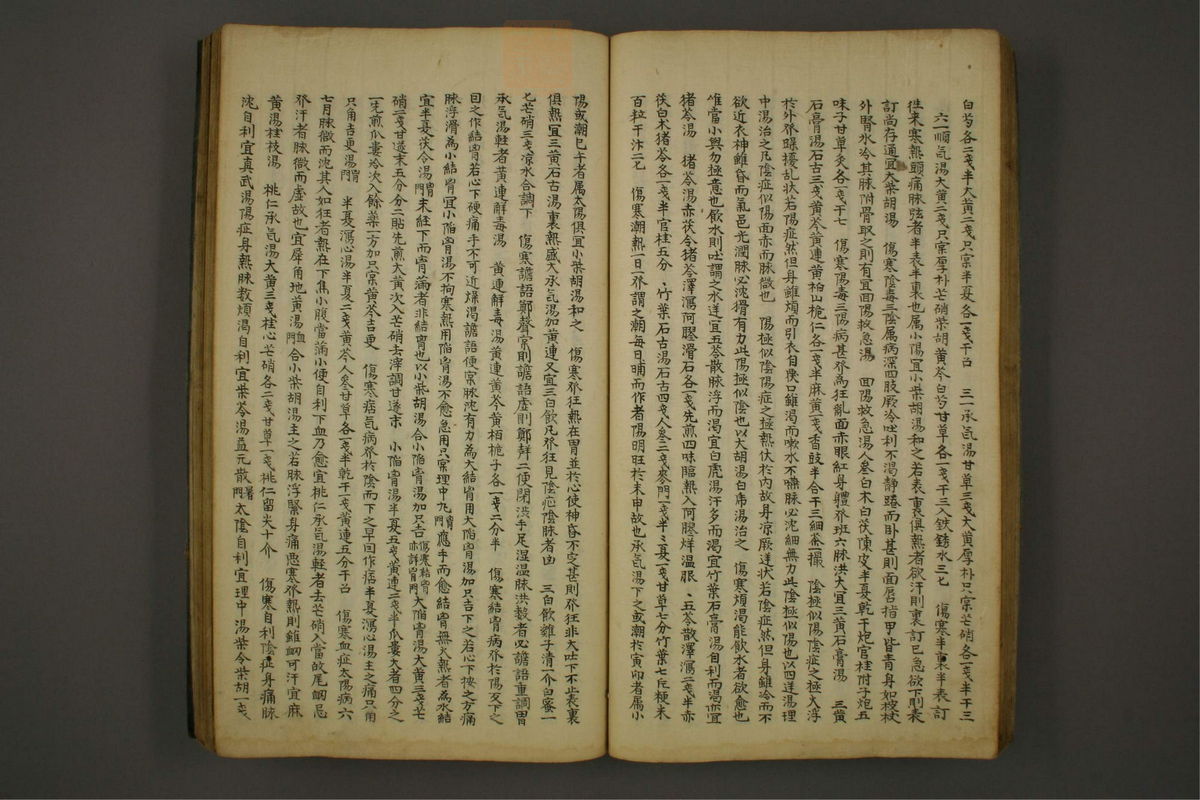 白芍各二戔半大黃二戔只宲半夏各一戔干召　三一承氣湯甘草三戔大黃厚朴只宲芒硝各一戔半干三
六一順氣湯大黃二戔只宲厚朴芒硝柴胡黃芩白芍甘草各一戔干三入鉄銹水三匕　傷寒半裏半表訂
徃来寒熱頭痛脉弦者半表半裏也属小陽冝小柴胡湯和之若表裏俱熱者欲汗則裏訂已急欲下則表
訂尚存通冝大柴胡湯　傷寒陰毒三陰属病深四肢厥冷吐利不渴静踡而卧甚則面唇指甲皆青身如被杖
外腎氷冷其脉附骨取之則有冝囬陽救急湯　囬陽救急湯人參白木白茯陳皮半夏乾干炮官桂附子炮五
味子甘草炙各一戔干七　傷寒陽毒三陽病甚發為狂亂面赤眼紅身軆發班六脉洪大冝三黃石膏湯　三黃
石膏湯石古三戔黃芩黃連黃柏山梔仁各一戔半麻黃一戔香豉半合干三細茶一撮　陰極似陽陰症之極火浮
於外發躁擾乱状若陽症然但身雖煩而引衣自𢂽口雖渴而嗽水不嚥脉必沈細無力此陰極似陽也以四逆湯理
中湯治之凡陰症似陽面赤而脉微也　陽極似陰陽症之極熱伏於内故身凉厥逆状若陰症然但身雖冷而不
欲近衣神雖昏而氣邑光潤脉必沈滑有力此陽極似陰也以大胡湯白帍湯治之　傷寒煩渴能飲水者欲愈也
唯當小與勿極意也飲水則吐謂之水逆冝五苓散脉浮而渴宜白虎湯汗多而渴宜竹葉石膏湯自利而渴亦冝
猪苓湯　猪苓湯赤茯令猪苓澤瀉阿膠滑石各一戔先煎四味臨熱入阿膠烊温服　五苓散澤瀉二戔半赤
茯白木猪苓各一戔半官桂五分　竹葉石古湯石古四戔人參二戔麥門一戔半夏一戔甘草七分竹葉七片粳米
百粒干汁二匕　傷寒潮熱一日一發謂之潮每日晡而作者陽明旺於未申故也承氣湯下之或潮於寅卯者属小
陽或潮巳午者属太陽俱宜小柴胡湯和之　傷寒發狂熱在胃並於心使神昏不定甚則發狂非大吐下不止表裏
俱熱冝三黃石古湯裏熱盛大承氣湯加黃連又宜三白飲凡發狂見陰症陰脉者凶　三白飲雞子清一介白蜜一
匕芒硝三戔凉水合調下　傷寒譫語鄭聲宲則譫語虛則鄭聲二便閉澁手足湿温脉洪数者必譫語重調胃
承氣湯軽者黃連解毒湯　黃連解毒湯黃連黃芩黃栢梔子各一戔二分半　傷寒結胷病發於陽反下之
囬之作結胷若心下硬痛手不可近燥渴譫語便宲脉沈有力為大結胷用大陥胷湯加只吉下之若心下按之方痛
脉浮滑為小結胷宜小陥胷湯不拘寒熱用陥胷湯不愈急用只宲理中丸胷門應手而愈結胷無大熱者為水結
宜半夏茯令湯胷門未経下而胷滿者非結胷也以小柴胡湯合小陥胷湯加只吉傷寒結胷亦詳胷門大陥胷湯大黃三戔芒
硝一戔甘遂末五分分二貼先煎大黃次入芒硝去滓調甘遂末　小陥胷湯半夏五戔黃連二戔半瓜蔞大者四分之
一先煎瓜蔞冷次入餘藥一方加只宲黃芩吉更　傷寒痞氣病發於陰而下之早囬作痞半夏瀉心湯主之痛只角
只角吉更湯胷門　半夏瀉心湯半夏二戔黃芩人參甘草各一戔半乾干一戔黃連五分干召　傷寒血症太陽病六
七月脉微而沈其人如狂者熱在下焦小腹當滿小便自利下血乃愈宜桃仁承氣湯軽者去芒硝入當故尾衂忌
發汗者脉微而虛故也宜犀角地黃湯血門合小柴胡湯主之若脉浮緊身痛悪寒發熱則雖衂可汗宜麻
黃湯桂枝湯　桃仁承氣湯大黃三戔桂心芒硝各二戔甘草一戔桃仁留尖十介　傷寒自利陰虛身痛脉
沈自利宜真武湯陽症身熱脉数煩渴自利宜柴苓湯益元散暑門太陰自利宜理中湯柴令柴胡一戔